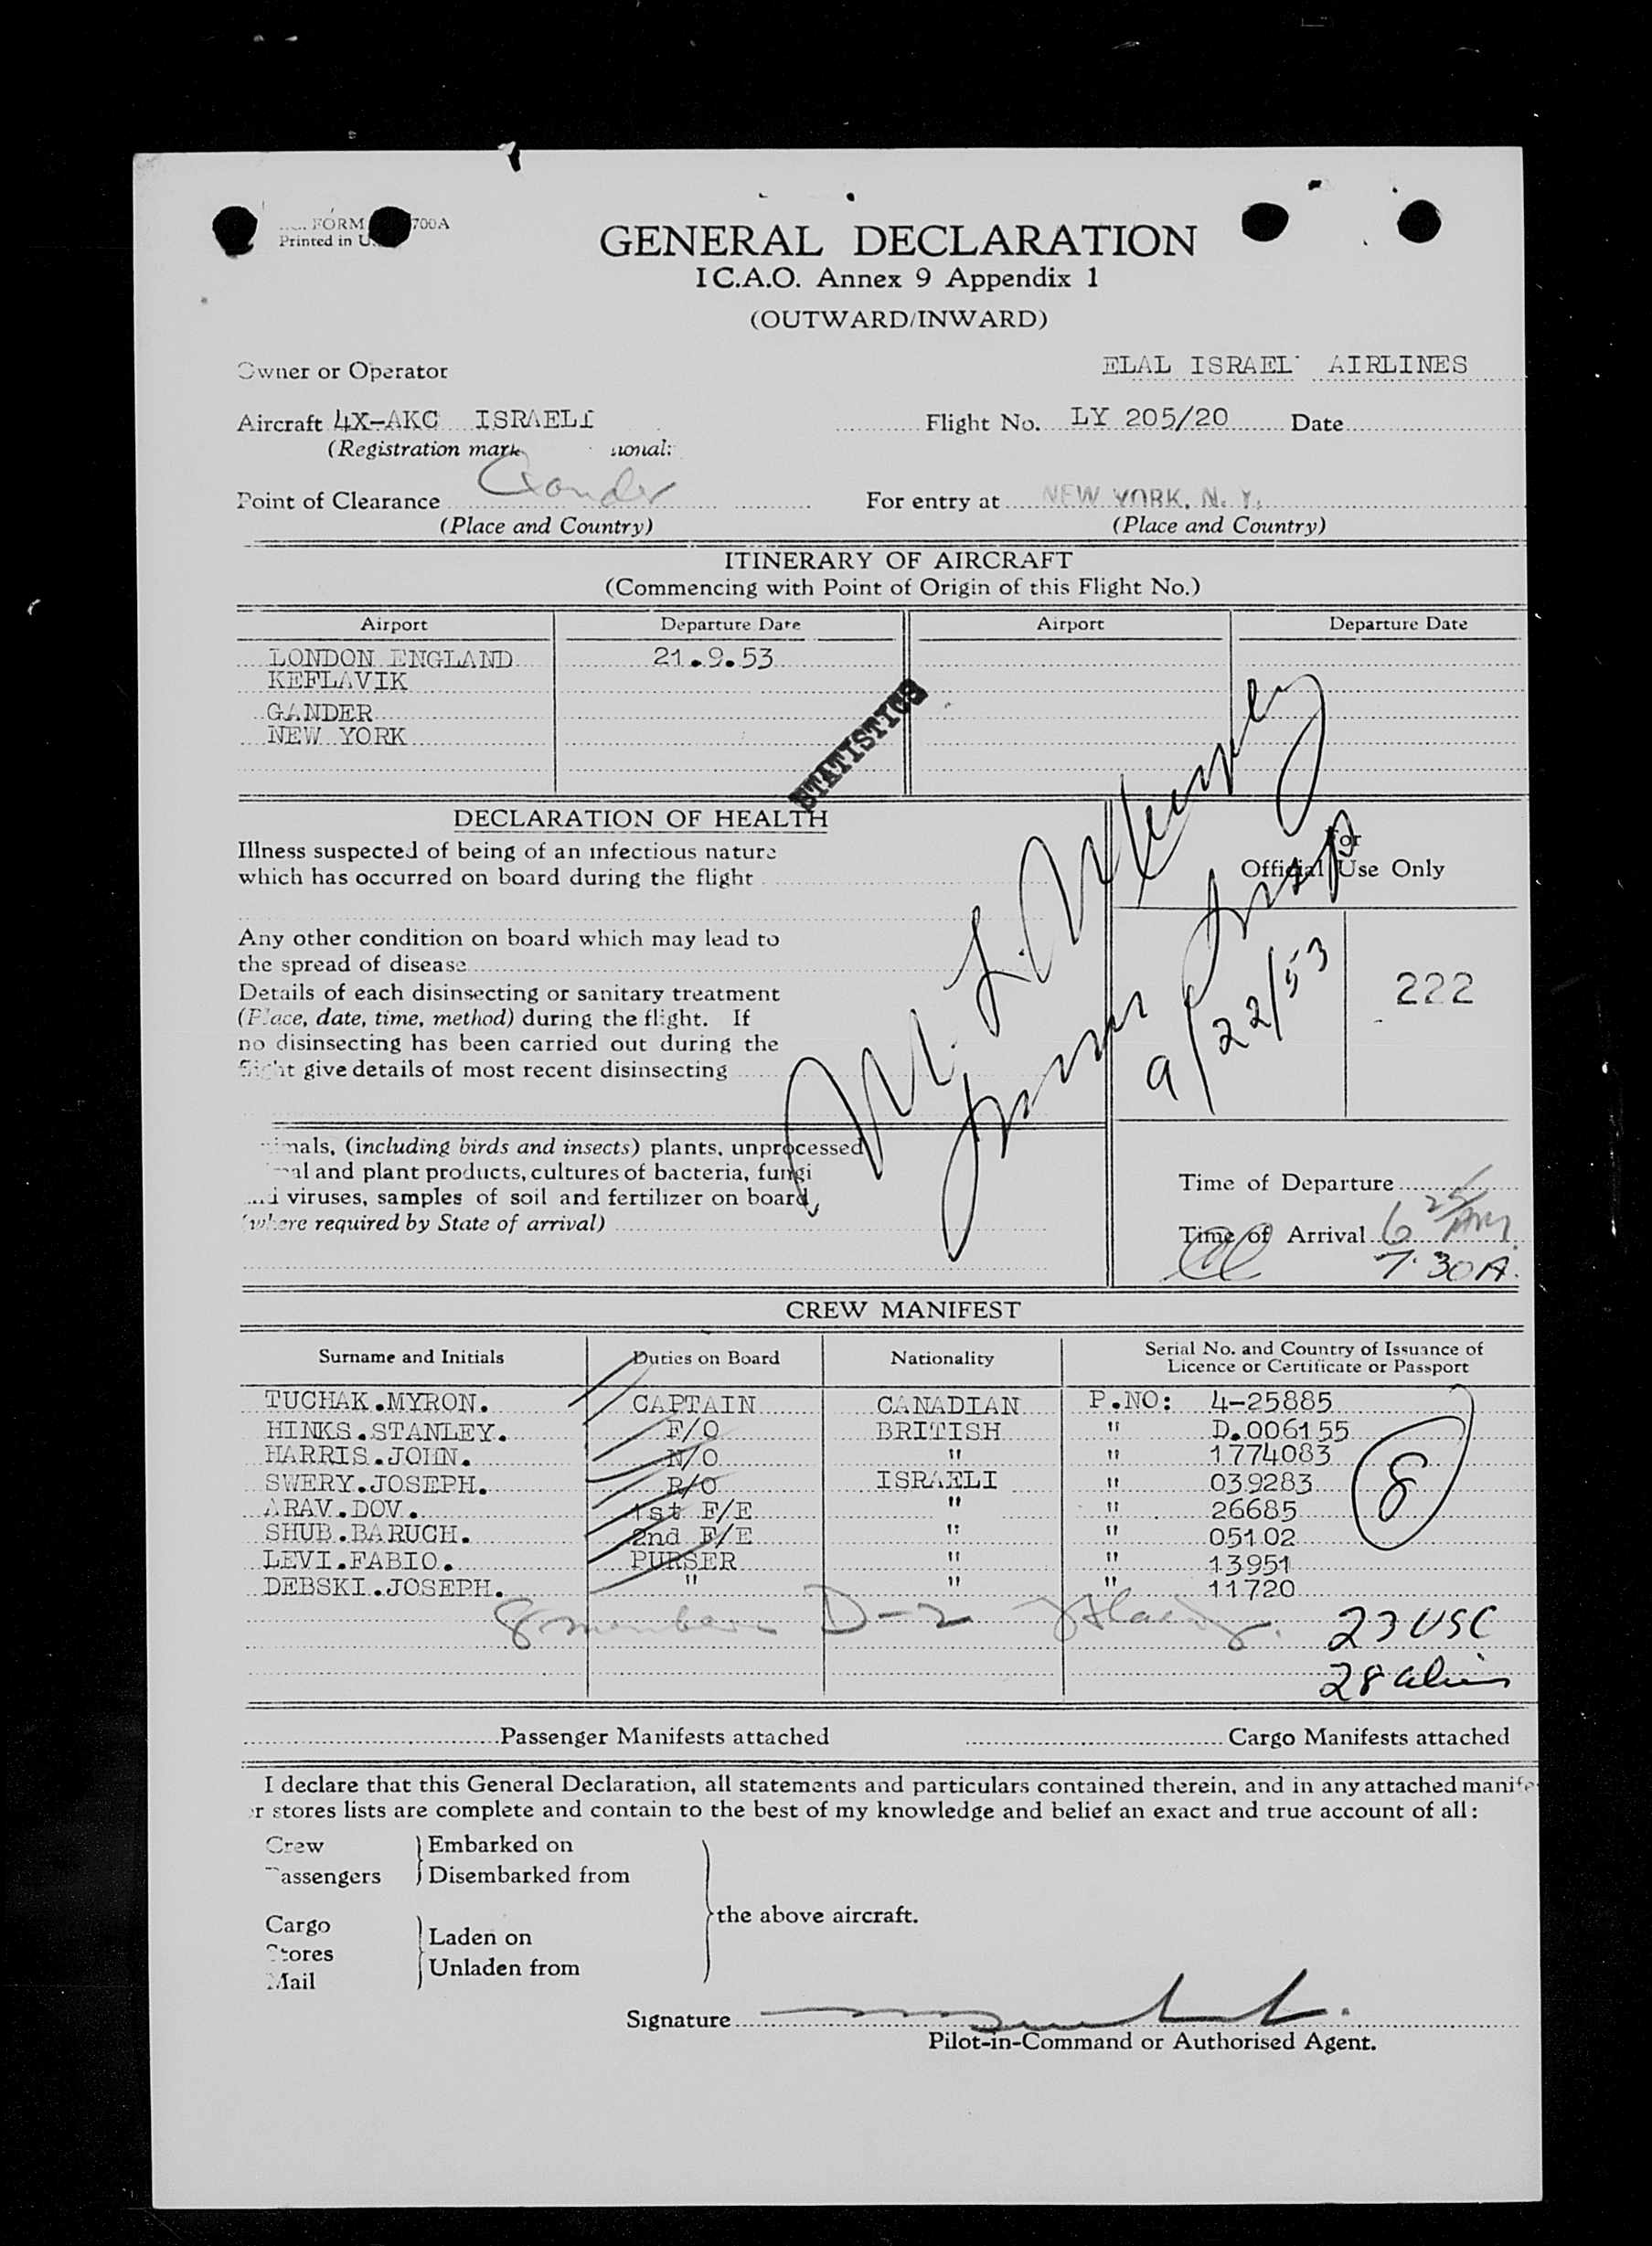 FORM 700A
Printed in U.
GENERAL DECLARATION
I C.A.O. Annex 9 Appendix 1
(OUTWARD/INWARD)
Owner or Operator ELAL ISRAEL AIRLINES
Aircraft 4X-AKC ISRAELI Flight No. LY 205/20 Date
(Registration mark ional:
Point of Clearance Gander For entry at NEW YORK, N. Y.
(Place and Country) (Place and Country)
ITINERARY OF AIRCRAFT
(Commencing with Point of Origin of this Flight No.)
Airport Departure Date Airport Departure Date
LONDON ENGLAND 21.9.53
KEFLAVIK
GANDER
NEW YORK
STATISTICS
DECLARATION OF HEALTH
Illness suspected of being of an infectious nature
which has occurred on board during the flight
Any other condition on board which may lead to
the spread of disease
Details of each disinsecting or sanitary treatment
(Place, date, time, method) during the flight. If
no disinsecting has been carried out during the
flight give details of most recent disinsecting
For
Official Use Only
9/22/53
222
imals, (including birds and insects) plants, unprocessed
al and plant products, cultures of bacteria, fungi
viruses, samples of soil and fertilizer on board,
(where required by State of arrival)
Time of Departure
Time of Arrival 6 25 AM.
7.30 A.
CREW MANIFEST
Surname and Initials Duties on Board Nationality Serial No. and Country of Issuance of
Licence or Certificate or Passport
TUCHAK.MYRON. CAPTAIN CANADIAN P.NO: 4-25885
HINKS.STANLEY. F/O BRITISH " D.006155
HARRIS.JOHN. N/O " " 1774083
SWERY.JOSEPH. R/O ISRAELI " 039283
ARAV.DOV. 1st F/E " " 26685
SHUB.BARUCH. 2nd F/E " " 05102
LEVI.FABIO. PURSER " " 13951
DEBSKI.JOSEPH. " " " 11720
8
8 members D-2
23 USC
28 aliens
Passenger Manifests attached Cargo Manifests attached
I declare that this General Declaration, all statements and particulars contained therein, and in any attached manife
r stores lists are complete and contain to the best of my knowledge and belief an exact and true account of all:
Crew Embarked on
assengers Disembarked from
the above aircraft.
Cargo Laden on
Stores
Mail Unladen from
Signature
Pilot-in-Command or Authorised Agent.